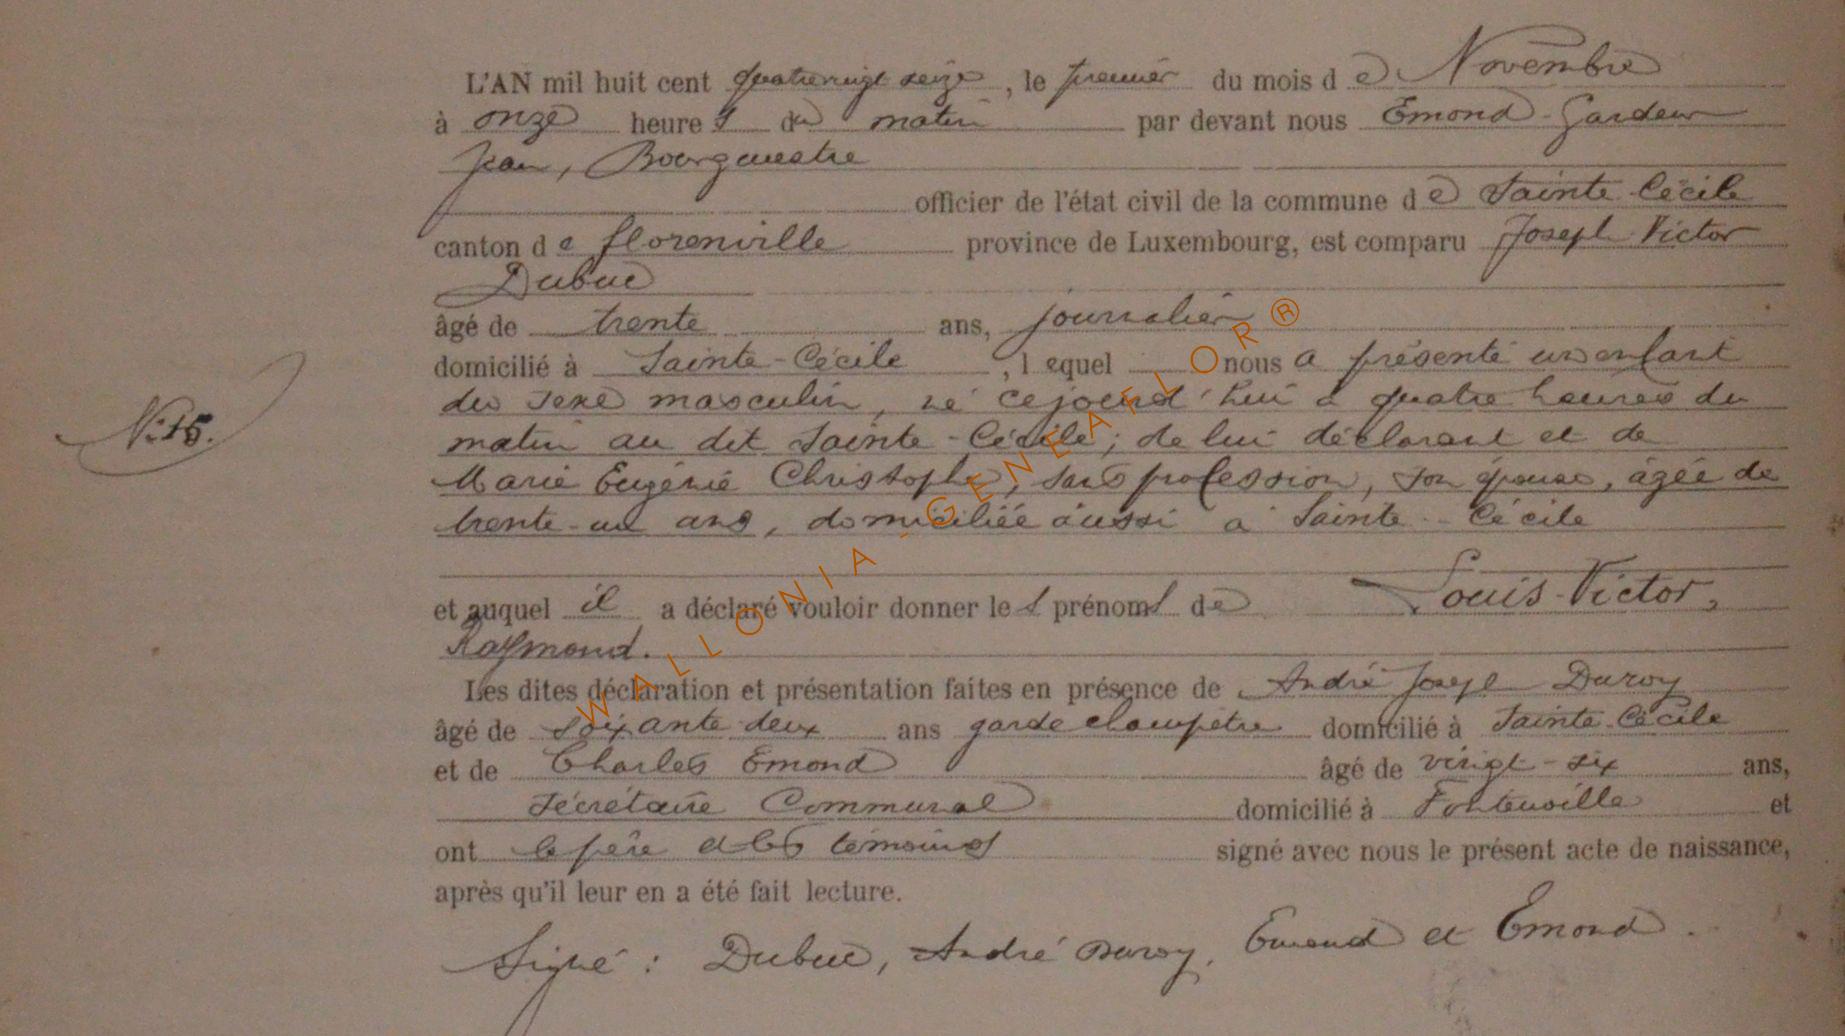 L'AN mil huit cent quatrevingt seize, le premier du mois de Novembre
à onze heures du matin par devant nous Emond-Gardeur
Jean, Bourgmestre
officier de l'état civil de la commune de Sainte-Cécile
canton de florenville province de Luxembourg, est comparu Joseph Victor
Dubuc
âgé de trente ans, journalier
domicilié à Sainte-Cécile, lequel nous a présenté un enfant
du sexe masculin, né cejourd'hui à quatre heures du
matin au dit Sainte-Cécile; de lui déclarant et de
N:15.
Marie Eugénie Christophe, sans profession, son épouse, âgée de
trente-un ans, domiciliée aussi à Sainte-Cécile
et auquel il a déclaré vouloir donner les prénoms de Louis-Victor,
Raymond.
Les dites déclaration et présentation faites en présence de André Joseph Duroy
âgé de soixante-deux ans garde champêtre domicilié à Sainte-Cécile
et de Charles Emond âgé de vingt-six ans,
secrétaire Communal domicilié à Fontenoille et
ont le père et les témoins signé avec nous le présent acte de naissance,
après qu'il leur en a été fait lecture.
Signé: Dubuc, André Duroy, Emond et Emond.
WALLONIA-GENEAFLOR®